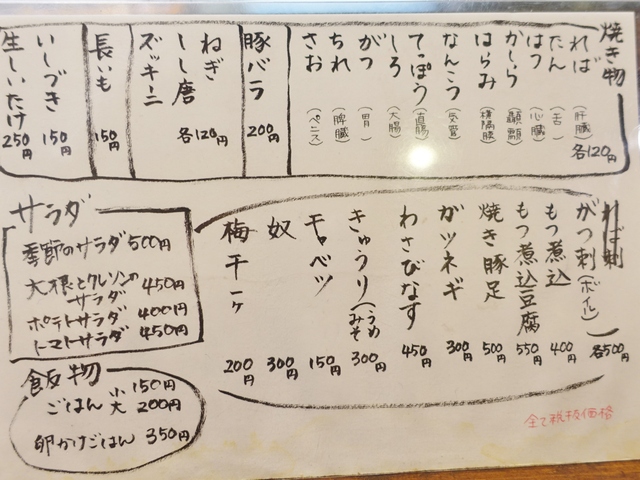 焼き物
れば(肝臓)
たん(舌)
はつ(心臓)
かしら(顳顬)
はらみ(横隔膜)
なんこう(気管)
てっぽう(直腸)
しろ(大腸)
がつ(胃)
ちれ(脾臓)
さお(ペニス)
各120円
豚バラ 200円
ねぎ
しし唐
ズッキーニ
各120円
長いも 150円
いしづき 150円
生しいたけ 250円
れば刺
がつ刺(ボイル)
各500円
もつ煮込 400円
もつ煮込豆腐 550円
焼き豚足 500円
ガツネギ 300円
わさびなす 450円
きゅうり(うめ みそ 300円
キャベツ 150円
奴 300円
梅干一ヶ 200円
サラダ
季節のサラダ 500円
大根とクレソンの
サラダ 450円
ポテトサラダ 400円
トマトサラダ 450円
飯物
ごはん 小 150円
大 200円
卵かけごはん 350円
全て税抜価格